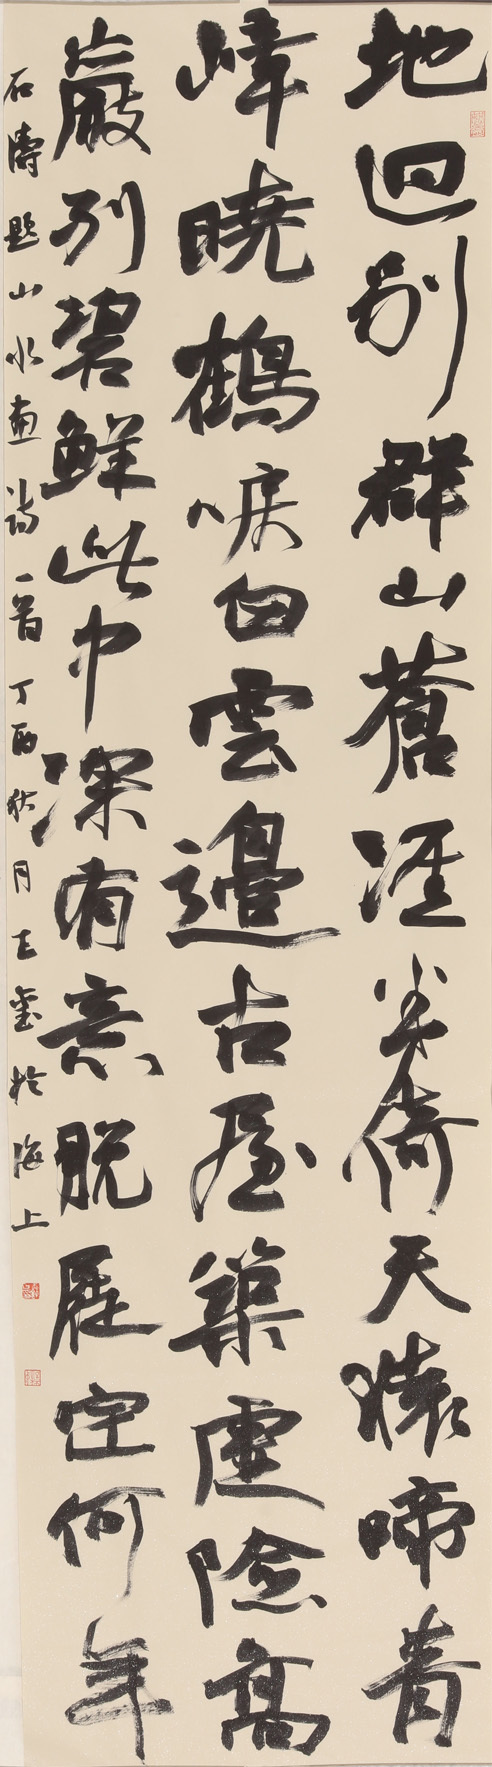 地迥別群山蒼涇半倚天猿啼青
嶂曉鶴唳白雲邊古屋築虛險高
巖別碧鮮此中深有意脫屣定何年
石濤題山水畫詩一首丁酉秋月於海上